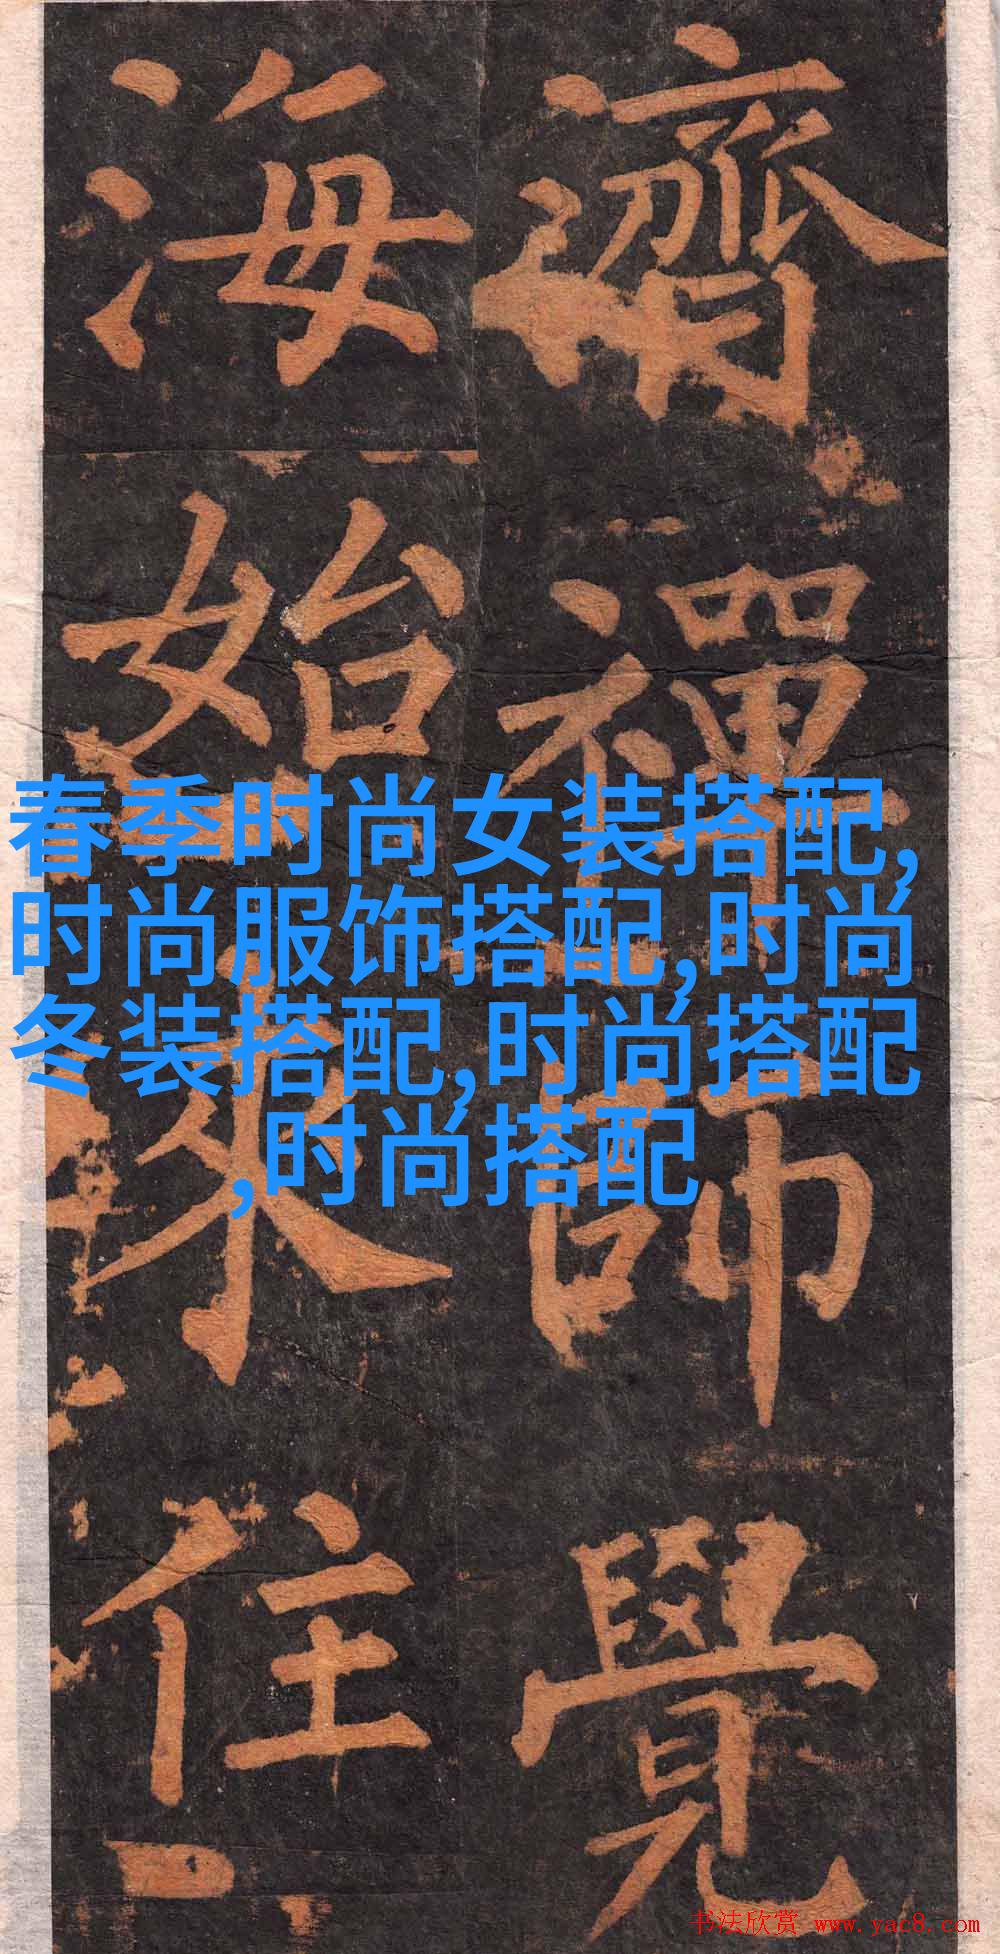 濟禪師覺
海始來住
春季时尚女装搭配,
时尚服饰搭配,时尚
冬装搭配,时尚搭配
,时尚搭配
书法欣赏 www.yac8.com